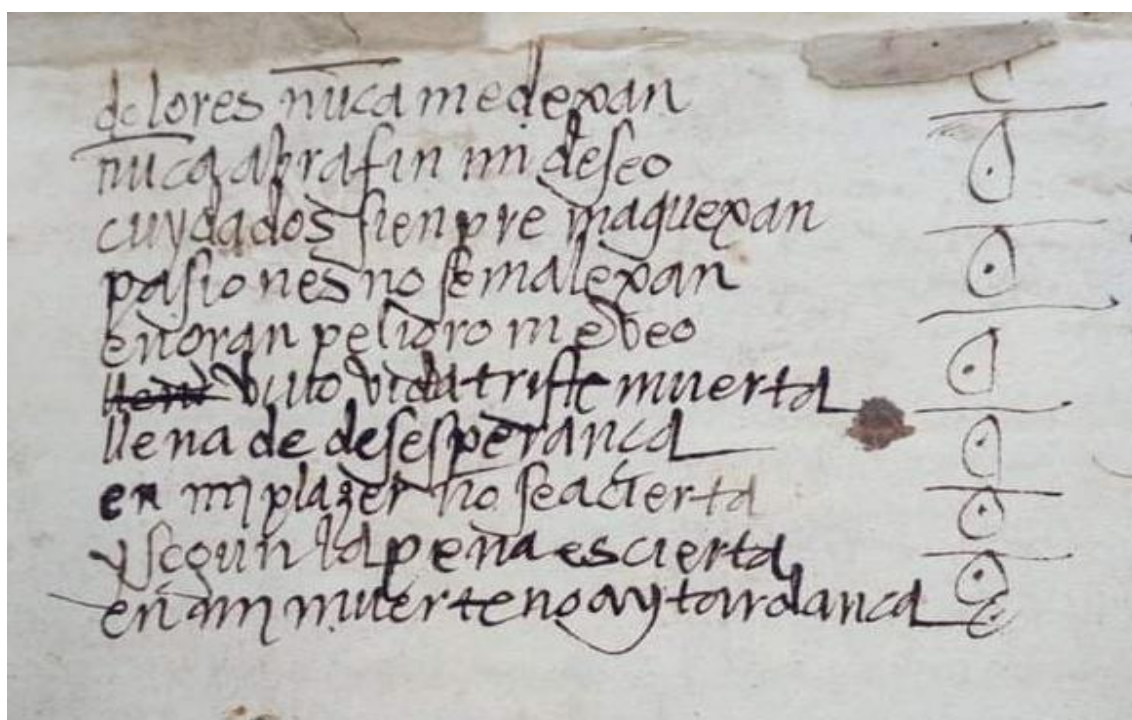 dolores nuca me dexan
nuca abra fin mi deseo
cuydados sienpre maquexan
pasiones no se malexan
en gran peligro me veo
vivo vida triste muerta
llena de desesperança
en mi plazer no se acierta
y segun la pena es cierta
en mi muerte no ay tardança